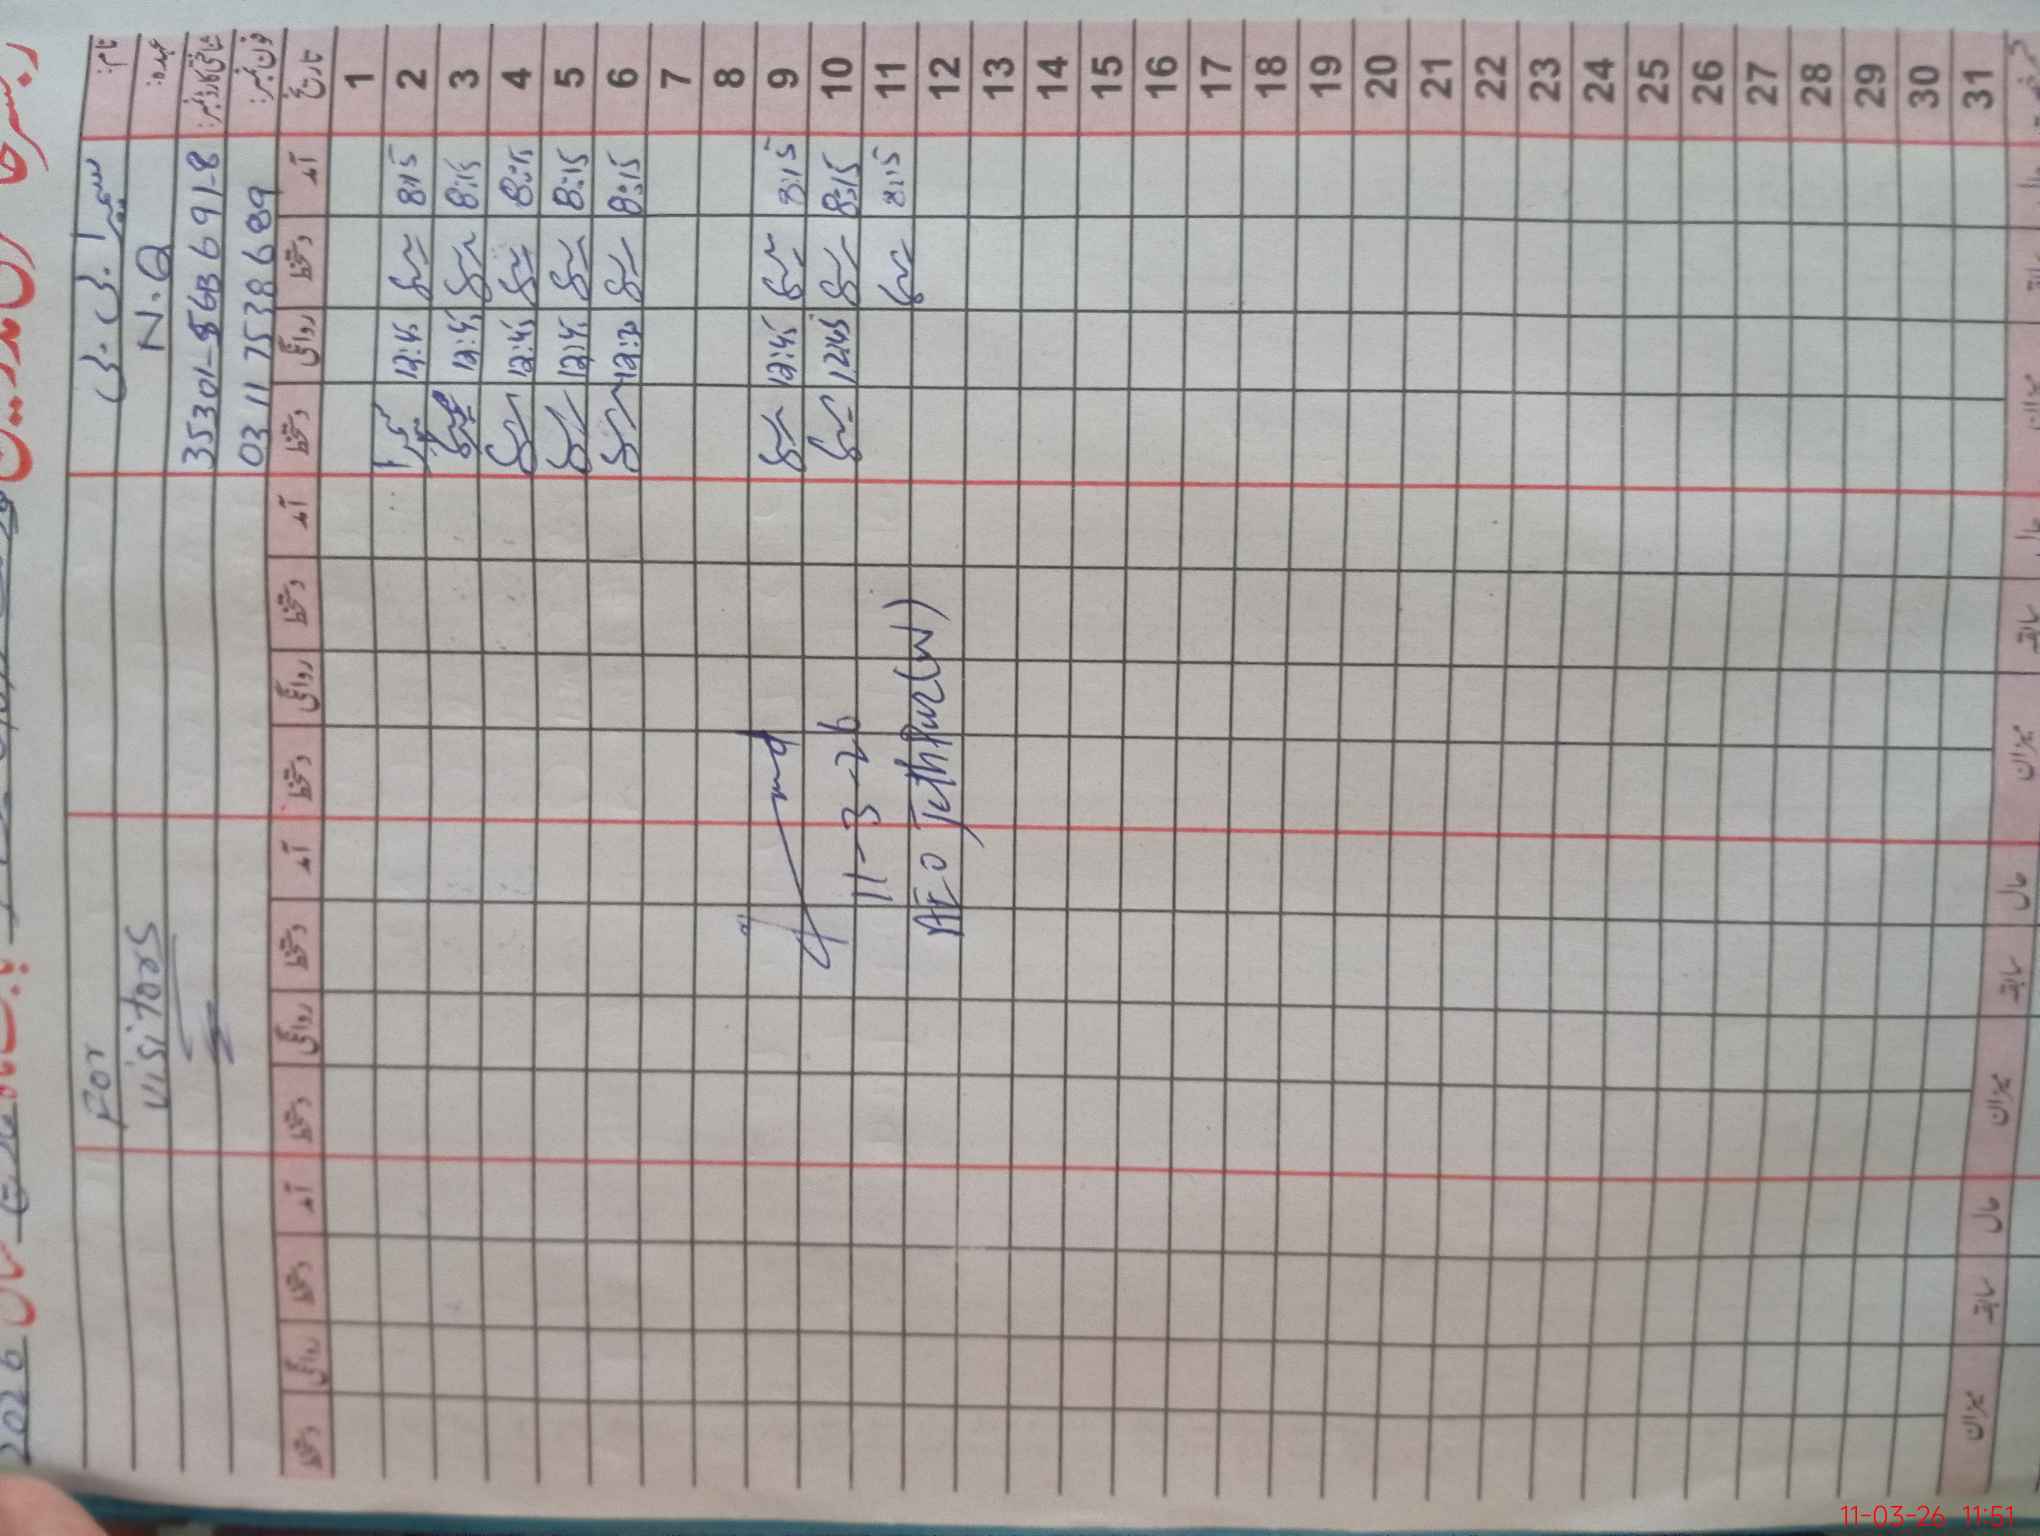 2026
نام:
عہدہ: N.Q
شناختی کارڈ نمبر: 35301-5683691-8
فون نمبر: 03117538689
For
visitors
تاریخ آمد دستخط روانگی دستخط آمد دستخط روانگی دستخط آمد دستخط روانگی دستخط آمد دستخط روانگی دستخط
1
2 8:15 12:45
3 8:15 12:45
4 8:15 12:45
5 8:15 12:45
6 8:15 12:30
7
8
9 8:15 12:45
10 8:15 12:45
11 8:15
12
13
14
15
16
17
18
19
20
21
22
23
24
25
26
27
28
29
30
31
11-3-26
AEO Jethpur(W)
حال سابقہ میزان حال سابقہ میزان حال سابقہ میزان حال سابقہ میزان
11-03-26 11:51